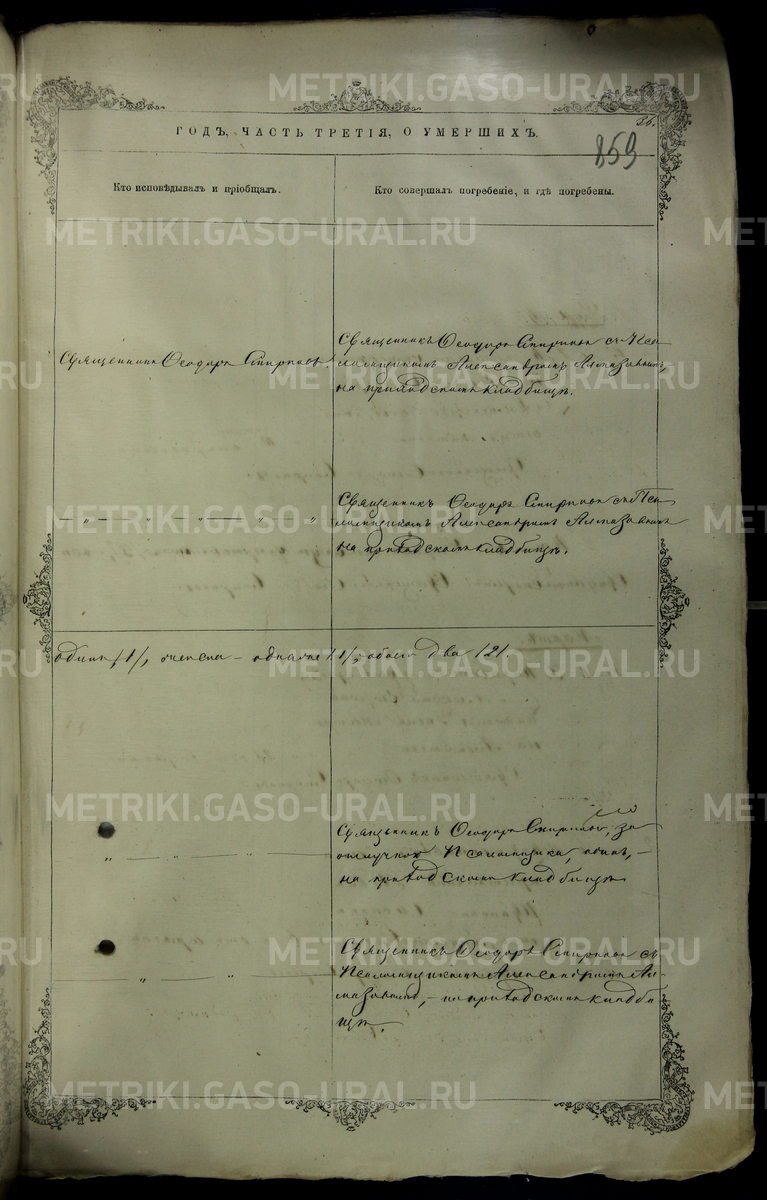 METRIKI.GASO-URAL.RU
86.
859
ГОДЪ, ЧАСТЬ ТРЕТІЯ, О УМЕРШИХЪ.
Кто исповѣдывалъ и пріобщалъ.
Кто совершалъ погребеніе, и гдѣ погребены.
Священникъ Ѳеодоръ Спиринъ
Священникъ Ѳеодоръ Спиринъ съ Пса
ломщикомъ Александромъ Алмазовымъ,
на приходскомъ кладбищѣ.
— „ — „ — „ — „ „
Священникъ Ѳеодоръ Спиринъ съ Пса
ломщикомъ Александромъ Алмазовымъ
на приходскомъ кладбищѣ.
одинъ /1/, женска – одна /1/, обоего два /2/.
„ — „ — „
Священникъ Ѳеодоръ Спиринъ, за
отлучкою Псаломщика, одинъ, –
на приходскомъ кладбищѣ
„ „
Священникъ Ѳеодоръ Спиринъ съ
Псаломщикомъ Александромъ Ал-
мазовымъ, – на приходскомъ кладби
щѣ.